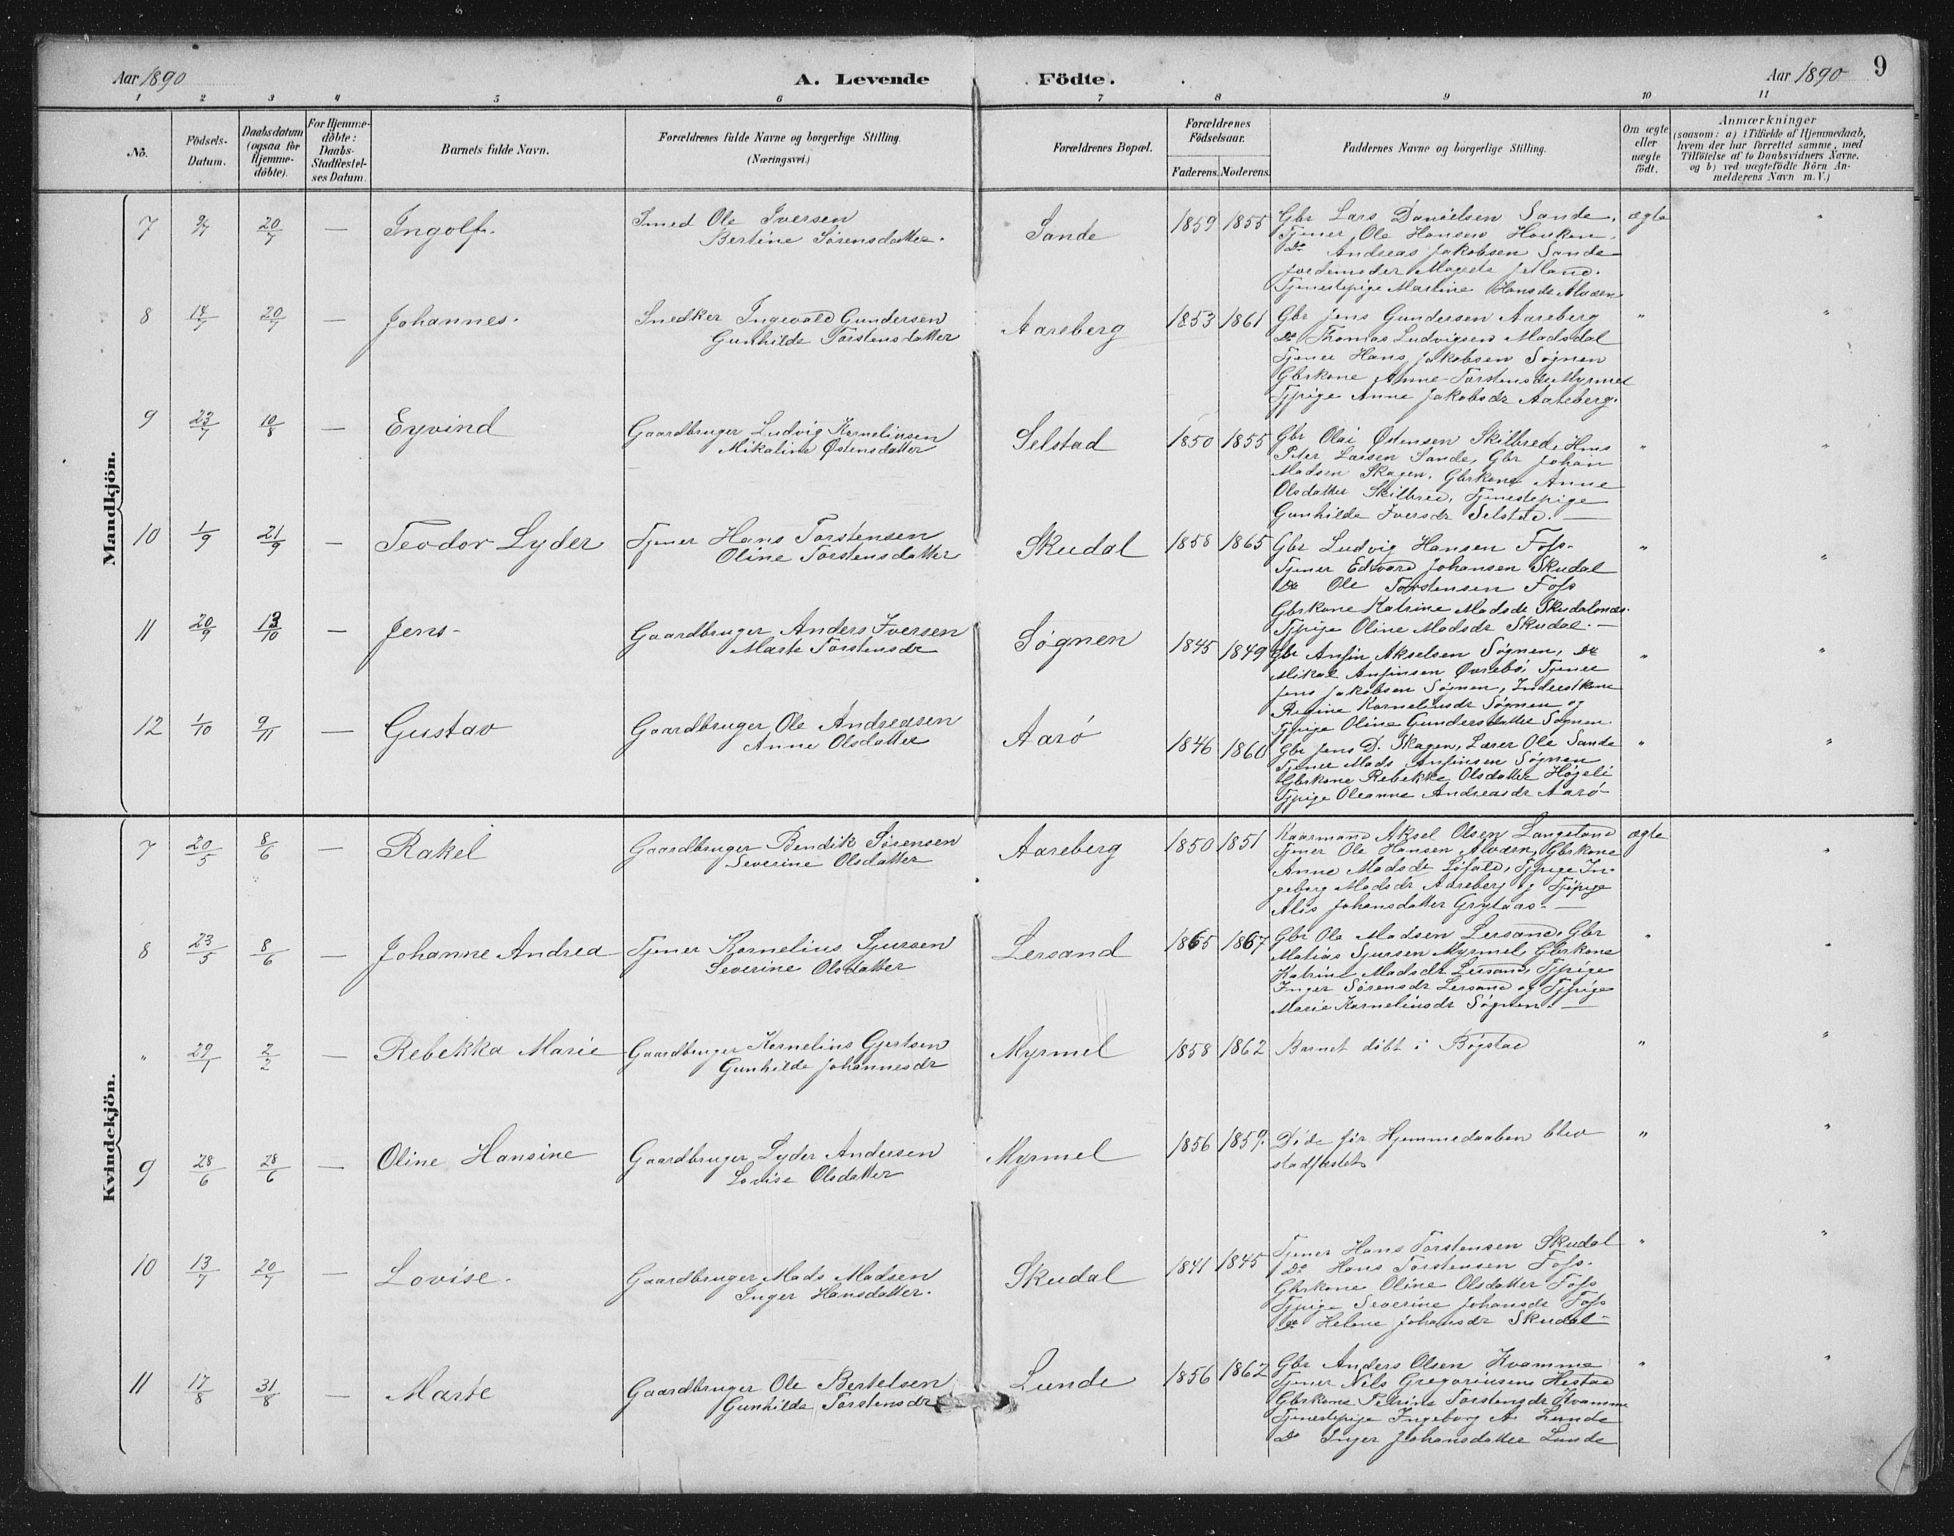 Aar 1890 A. Levende Födte. Aar 1890 9
1 2 3 4 5 6 7 8 9 10 11
No. Födsels-Datum. Daabsdatum (ogsaa for Hjemme-döbte). For Hjemme-döbte: Daabs-Stadfæstel-ses Datum. Barnets fulde Navn. Forældrenes fulde Navne og borgerlige Stilling. (Næringsvei.) Forældrenes Bopæl. Forældrenes Födselsaar. Faderens. Moderens. Faddernes Navne og borgerlige Stilling. Om ægte eller uægte födt. Anmærkninger (saasom: a) i Tilfælde af Hjemmedaab, hvem der har forrettet samme, med Tilföielse af to Daabsvidners Navne, og b) ved uægtefödte Börn An-melderens Navn m. V.)
Mandkjön.
7 20/7 — Ingolf. Smed Ole Iversen Sande 1859 1855 Gbr Lars Danielsen Sande, ægte "
Bertine Sørensdatter. Tjener Ole Hansen Hauken.
Do Andreas Jakobsen Sande
Jordemoder Magrete
Tjenestepige Martine Hansdr Alværn
8 14/7 20/7 — Johannes. Snedker Ingevald Gundersen Aareberg 1853 1861 Gbr Jens Gundersen Aareberg " "
Gunhilde Torstensdatter Do Thomas Ludvigsen Madsdal
Tjener Hans Jakobsen Søgnen
Gbrkone Anne Torstensdr Myrmel
Tjpige Anne Jakobsdr Aareberg.
9 23/7 10/8 — Eyvind Gaardbruger Ludvig Kornelinsen Selstad 1850 1855 Gbr Olai Østensen Skilbred, Hms " "
Mikaline Østensdatter Peter Larsen Sande, Gbr Johan
Madsen Skagen, Gbrkone Anne
Olsdatter Skilbred, Tjenestepige
Gunhilde Iversdr Selstad. —
10 1/9 21/9 — Teodor Lyder Tjener Hans Torstensen Skudal 1858 1865 Gbr Ludvig Hansen Foss. " "
Oline Torstensdatter Tjener Edvard Johansen Skudal
Do Ole Torstensen Foss
Gbrkone Katrine Madsdr Skudalsnes.
Tjpige Oline Madsdr Skudal. —
11 20/9 13/10 — Jens. Gaardbruger Anders Iversen Søgnen 1845 1849 Gbr Anfin Akselsen Søgnen, Do " "
Marte Torstensdr Mikal Anfinsen Øvrebø, Tjener
Jens Jakobsen Søgnen, Inderstkone
Regine Korneliusdr Søgnen og
Tjpige Oline Gundersdatter Søgnen.
12 1/10 9/11 — Gustav Gaardbruger Ole Andreasen Aarø 1846 1860 Gbr Jens D. Skagen, Lærer Ole Sande " "
Anne Olsdatter Tjener Mads Anfinsen Søgnen
Gbrkone Rebekke Olsdatter Højeli
Tjpige Oleanne Andreasdr Aarø
Kvindekjön.
7 20/5 8/6 — Rakel Gaardbruger Bendik Sørensen Aareberg 1850 1851 Kaarmand Aksel Olsen Langeland ægte "
Severine Olsdatter Tjener Ole Hansen Alværn, Gbrkone
Anne Madsdr Løfald, Tjpige In-
geborg Madsdr Aareberg og Tjpige
Alis Johansdatter Grytaas. —
8 23/5 8/6 — Johanne Andrea Tjener Kornelius Sjursen Lersand 1865 1867 Gbr Ole Madsen Lersand, Gbr " "
Severine Olsdatter Matias Sjursen Myrmel, Gbrkone
Katrine Madsdr Lersand, Tjpige
Inger Sørensdr Lersand og Tjpige
Marie Korneliusdr Søgnen. —
" 29/1 2/2 — Rebekka Marie Gaardbruger Kornelius Gjertsen Myrmel 1858 1862 Barnet døbt i Bøgstad " "
Gunhilde Johannesdr
9 28/6 28/6 — Oline Hansine Gaardbruger Lyder Andersen Myrmel 1856 1859. Døde før Hjemmedaaben blev " "
Lovise Olsdatter stadfæstet
10 13/7 20/7 — Lovise. Gaardbruger Mads Madsen Skudal 1841 1845 Tjener Hans Torstensen Skudal " "
Inger Hansdatter. Do Hans Torstensen Foss.
Gbrkone Oline Olsdatter Foss
Tjpige Severine Johansdr Foss
Do Helene Johansdr Skudal
11 17/8 31/8 — Marte Gaardbruger Ole Bertelsen Lunde 1856 1862 Gbr Anders Olsen Kvamme " "
Gunhilde Torstensdr Tjener Nils Gregoriusen Hestad
Gbrkone Petrine Torstensdr Kvamme
Tjenestepige Ingeborg A. Lunde
Do Inger Johansdatter Lunde